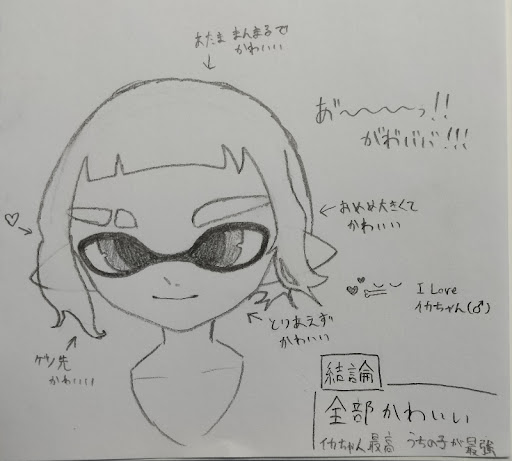 あたま まんまるで
かわいい
あ゛〜〜〜っ!!
がわいい゛!!!
おめめ大きくて
かわいい
I Love
イカちゃん(♂)
とりあえず
かわいい
ゲソ先
かわいい
結論
全部かわいい
イカちゃん最高 うちの子が最強